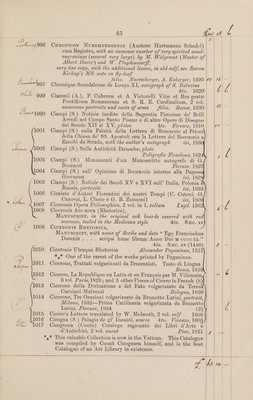 45
996 CHRONICON NUREMBERGENSE (Auctore Hartmanno Schedel) cum Registro, with an immense number of very spirited wood-
engravings (several very large) by M. Wolgemut (Master of
Albert Durer) and W. Pleydenwurff,
very fine copy, with the additional leaves, in old calf, ex Baron
Kirkup's MS. note on fly-leaf
folio. Nuremberge, A. Koberger, 1493
997 Chronique Scandaleuse de Louys XI, autograph of S. Balusius
4to. 1620
999 Ciaconii (A.), F. Cabrerae et A. Victorelli Vitæ et Res gestæ
Pontificum Romanorum et S. R. E. Cardinalium, 2 vol.
numerous portraits and coats of arms folio. Romæ, 1630
1000 Ciampi (S.) Notizie inedite della Sagrestia Pistoiese de' Belli
Arredi del Campo Santo Pisano e di altre Opere di Disegno
dal Secolo XII al XV, plates 4to. Firenze, 1810
1001 Ciampi (S.) sulla Falsità della Lettera di Boccaccio al Priore
della Chiesa de' SS. Apostoli con la Lettera del Boccaccio a
Zanobi da Strada, with the author's autograph ivi, 1830
1002 Ciampi (S.) Sulle Antichità Etrusche, plate
Poligrafia Fiesolana, 1824
1003 Ciampi (S.) Monumenti d'un Manoscritto autografo di G.
Boccacci Firenze, 1827
1004 Ciampi (S.) sull' Opinione di Boccaccio intorno alla Papessa
Giovanna ivi, 1828
1005 Ciampi (S.) Notizie dei Secoli XV e XVI sull' Italia, Polonia e
Russia, portrait ivi, 1833
1006 Cicalate d'Autori Fiorentini dei nostri Tempi (C. Catani, G.
Catoval, L. Clasio e G. B. Zannoni) ivi, 1808
1007 Ciceronis Opera Philosophica, 2 vol. in 1, vellum Lugd. 1562
1008 Ciceronis Ars nova (Rhetorica),
MANUSCRIPT, in the original oak boards covered with red
morocco, tooled in the Medicean style 4to. SÆC. XV
1009 CICERONIS RHETORICA,
MANUSCRIPT, with name of Scribe and date "Ego Franciscus
Duranis . . . scripsi hunc librum Anno Dni M CCCC LX"
4to. SÆC. XV (1460)
1010 Ciceronis Utraque Rhetorica Alexander Paganinus, 1521
*** One of the rarest of the works printed by Paganinus.
1011 Cicerone, Trattati volgarizzati da Trecentisti. Testo di Lingua
Roma, 1819
1012 Ciceron, La Republique en Latin et en Français par M. Villemain,
3 vol. Paris, 1823; and 5 other Pieces of Cicero in French (8)
1013 Cicerone della Divinazione e del Fato volgarizzate da Teresa
Carniani Malvezzi Bologna, 1830
1014 Cicerone, Tre Orazioni volgarizzate da Brunetto Latini, portrait,
Milano, 1832—Prima Catilinaria volgarizzata da Brunetto
Latini, Firenze, 1834 (2)
1015 Cicero's Letters translated by W. Melmoth, 2 vol. calf 1808
1016 Cicogna (S.) Palagio de gl' Incanti, scarce 4to. Vicenza, 1605
1017 Cicognara (Conte) Catalogo ragionato dei Libri d'Arte e
d'Antichità, 2 vol. uncut Pisa, 1821
*** This valuable Collection is now in the Vatican. This Catalogue
was compiled by Count Cicognara himself, and is the best
Catalogue of an Art Library in existence.